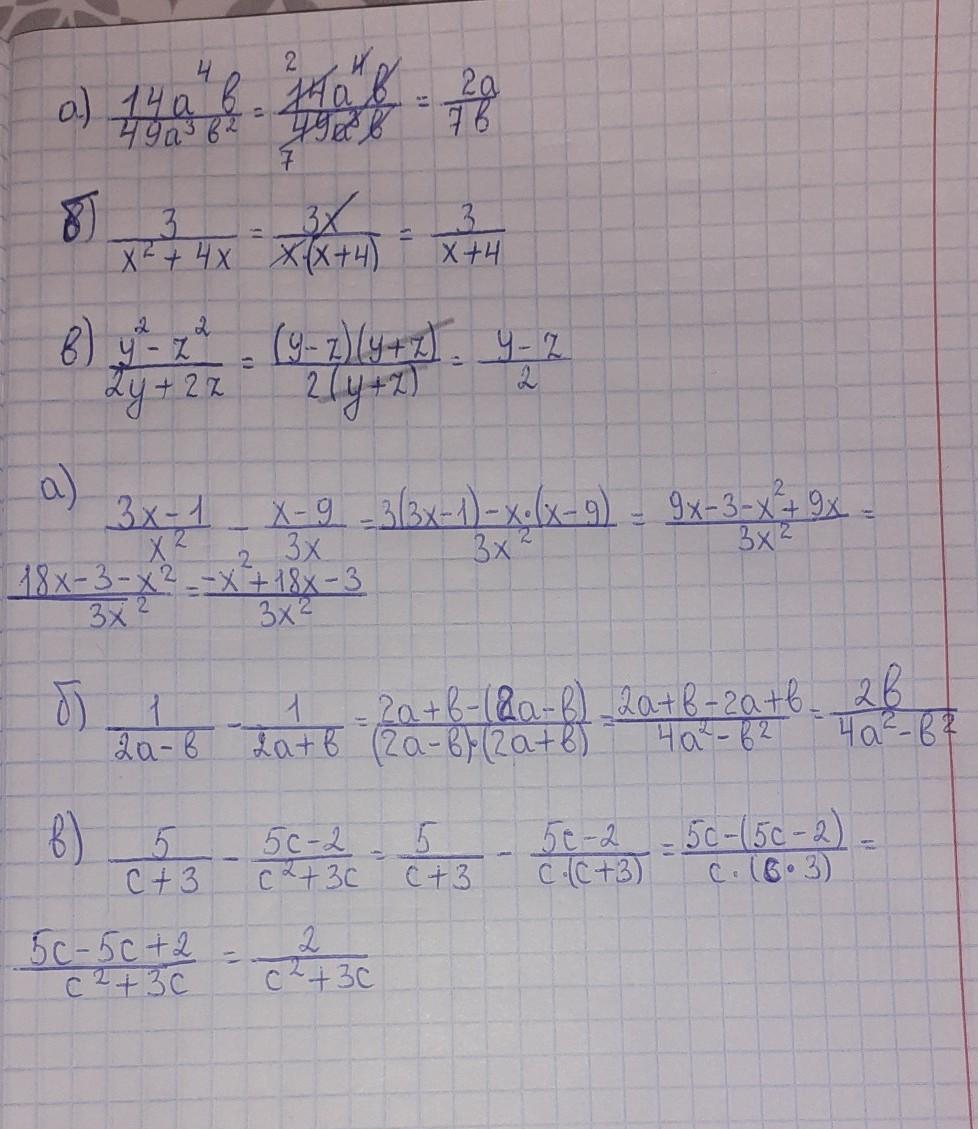 а) 14a⁴b/49a³b² = 14a⁴b/49a³b (2, 7) = 2a/7b
б) 3/x²+4x = 3x/x·(x+4) = 3/x+4
в) y²-z²/2y+2z = (y-z)(y+z)/2(y+z) = y-z/2
а) 3x-1/x² - x-9/3x = 3(3x-1)-x·(x-9)/3x² = 9x-3-x²+9x/3x² =
18x-3-x²/3x² = -x²+18x-3/3x²
б) 1/2a-b - 1/2a+b = 2a+b-(2a-b)/(2a-b)·(2a+b) = 2a+b-2a+b/4a²-b² = 2b/4a²-b²
в) 5/c+3 - 5c-2/c²+3c = 5/c+3 - 5c-2/c·(c+3) = 5c-(5c-2)/c·(c·3) =
5c-5c+2/c²+3c = 2/c²+3c